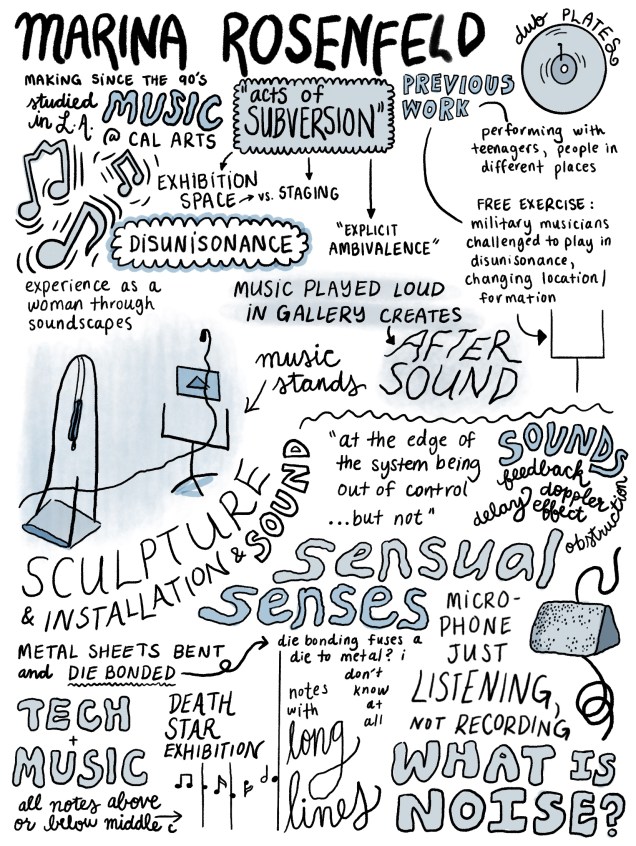 MARINA ROSENFELD
dub PLATES
MAKING SINCE THE 90'S
studied
in L.A.
MUSIC
@ CAL ARTS
"acts of
SUBVERSION"
EXHIBITION
SPACE → vs. STAGING
"EXPLICIT
AMBIVALENCE"
PREVIOUS
WORK
performing with
teenagers, people in
different places
FREE EXERCISE:
military musicians
challenged to play in
disunisonance,
changing location/
formation
DISUNISONANCE
experience as a
woman through
soundscapes
MUSIC PLAYED LOUD
IN GALLERY CREATES
AFTER
SOUND
music
stands
"at the edge of
the system being
out of control
...but not"
SOUNDS
feedback
doppler
delay effect
obstruction
SCULPTURE
& INSTALLATION & SOUND
sensual
senses
MICRO-
PHONE
JUST
LISTENING,
NOT RECORDING
METAL SHEETS BENT
and DIE BONDED
die bonding fuses a
die to metal? i
don't
know
at
all
TECH
+
MUSIC
all notes above
or below middle c
DEATH
STAR
EXHIBITION
notes
with
long
lines
WHAT IS
NOISE?